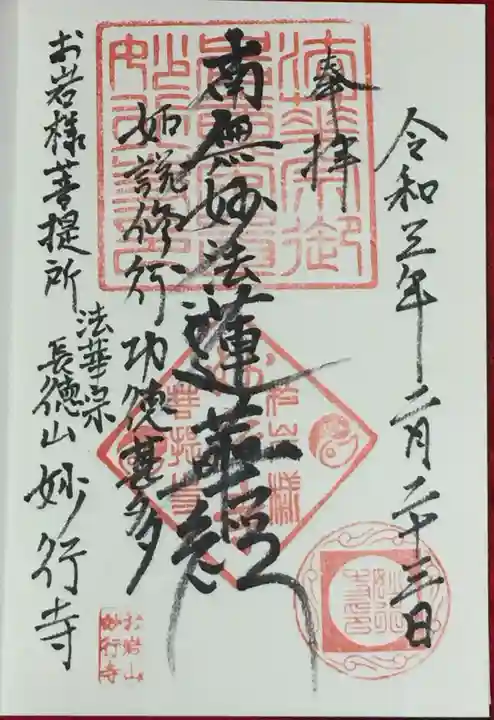 令和三年二月二十三日
奉拝
南無妙法蓮華経
如説修行功徳甚多
お岩様菩提所
法華宗
長徳山妙行寺
お岩様
菩提寺
お岩山
妙行寺